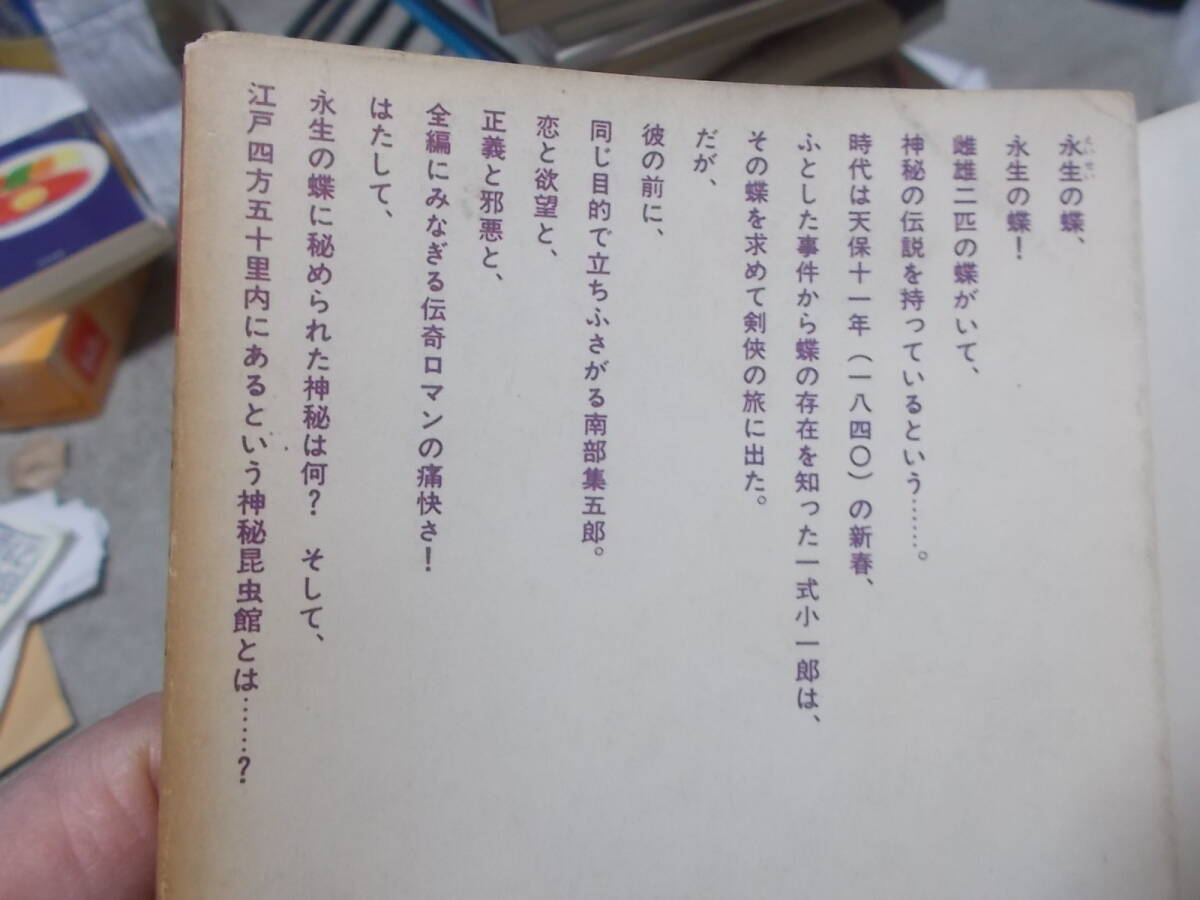 永生の蝶、
永生の蝶！
雌雄二匹の蝶がいて、
神秘の伝説を持っているという……。
時代は天保十一年（一八四〇）の新春、
ふとした事件から蝶の存在を知った一式小一郎は、
その蝶を求めて剣侠の旅に出た。
だが、
彼の前に、
同じ目的で立ちふさがる南部集五郎。
恋と欲望と、
正義と邪悪と、
全編にみなぎる伝奇ロマンの痛快さ！
はたして、
永生の蝶に秘められた神秘は何？　そして、
江戸四方五十里内にあるという神秘昆虫館とは……？